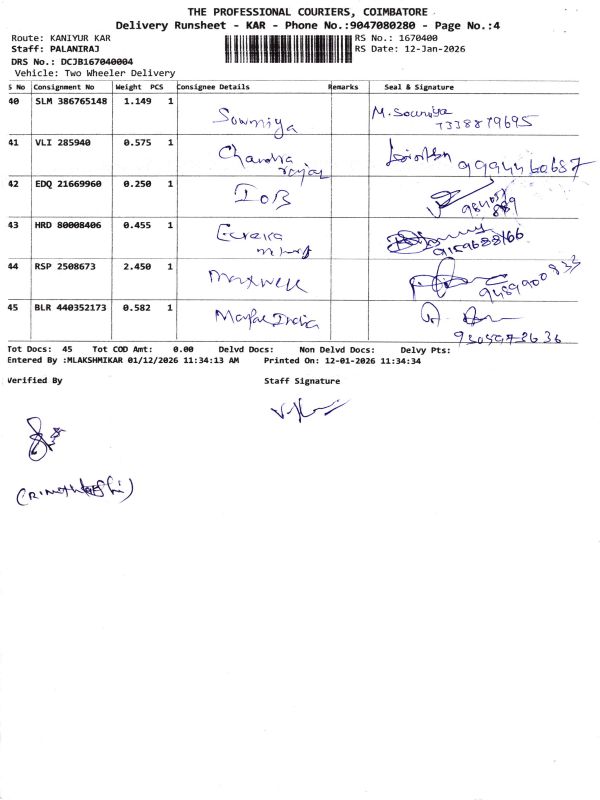 THE PROFESSIONAL COURIERS, COIMBATORE
Delivery Runsheet - KAR - Phone No.:9047080280 - Page No.:4
Route: KANIYUR KAR
RS No.: 1670400
Staff: PALANIRAJ
RS Date: 12-Jan-2026
DRS No.: DCJB167040004
Vehicle: Two Wheeler Delivery
S No Consignment No Weight PCS Consignee Details Remarks Seal & Signature
40 SLM 386765148 1.149 1 Sowmiya M. Sowmiya
7338879695
41 VLI 285940 0.575 1 Chandra 9994460687
42 EDQ 21669960 0.250 1 IOB
43 HRD 80008406 0.455 1 Eureka 9159688166
44 RSP 2508673 2.450 1 Maxwell 9489900833
45 BLR 440352173 0.582 1 India
Tot Docs: 45 Tot COD Amt: 0.00 Delvd Docs: Non Delvd Docs: Delvy Pts:
Entered By :MLAKSHMIKAR 01/12/2026 11:34:13 AM Printed On: 12-01-2026 11:34:34
Verified By Staff Signature